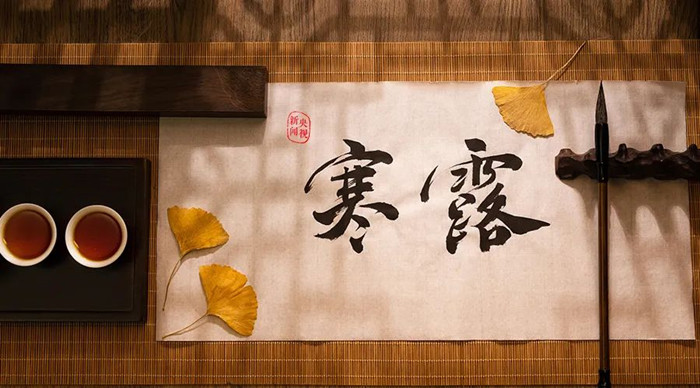 央视
新闻
寒露